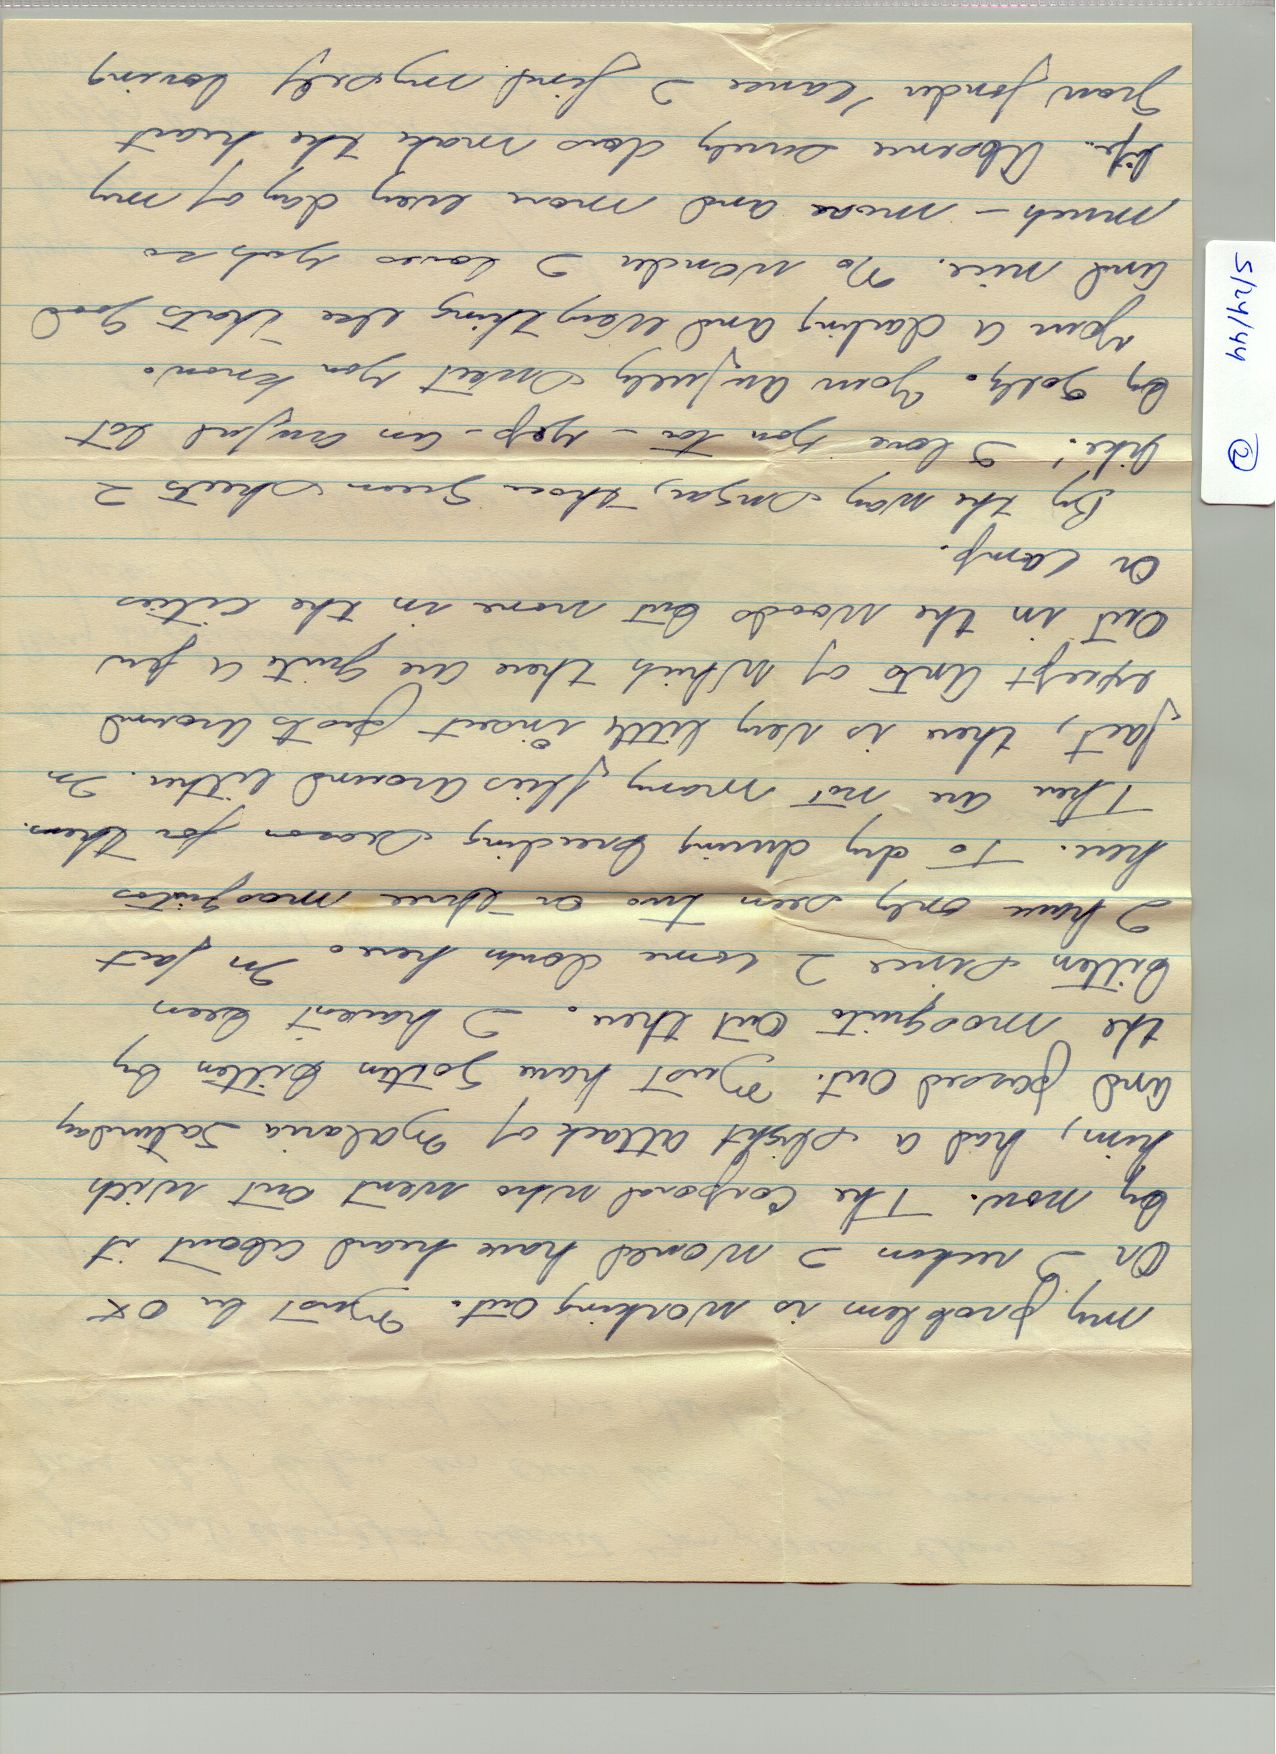 my problem is working out. Must be OK
Or I reckon I would have heard about it
by now. The Corporal who went out with
him, had a slight attack of Malaria Saturday
and passed out. Must have gotten bitten by
the mosquito out there. I havent been
bitten since I come down here. In fact
I have only seen two or three mosquitos
here. To dry during breeding season for them.
Ther are not many flies around either. In
fact, ther is very little insect pests around
except ants of which there are quite a few
out in the woods but none in the cities
or Camp.
By the way Sugar, those green sheets I
like! I love you too - yep - an awful lot
by golly. Your awfully sweet you know.
Your a darling and everything else thats good
and nice. No wonder I loves yah so
much - more and more every day of my
life. Absence surely does make the heart
grow fonder 'cause I find myself loving
5/24/44 2